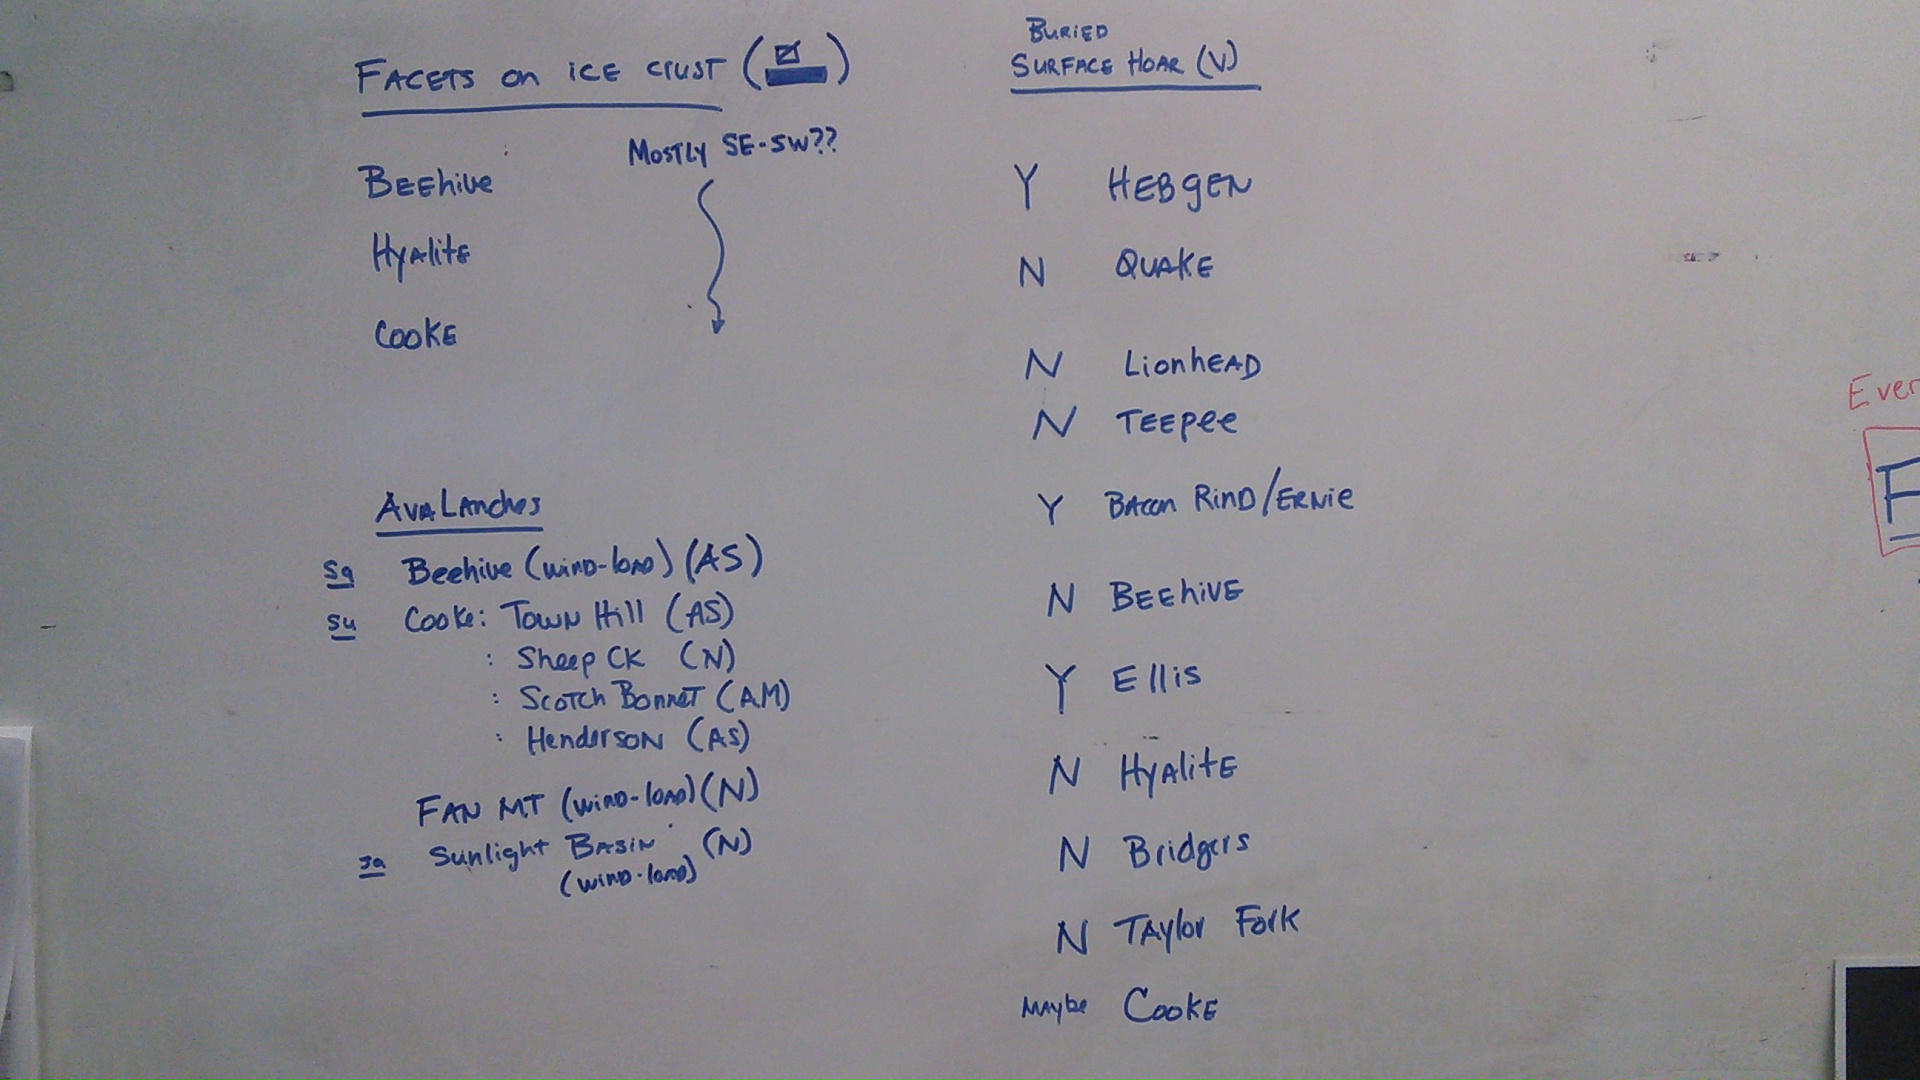 FACETS on iCE CRUST ( )
MOSTLY SE-SW??
BEEhive
HyAlitE
COOKE
AvaLAnches
Sa Beehive (wind-load) (AS)
Su Cooke: Town Hill (AS)
: Sheep CK (N)
: Scotch Bonnet (AM)
: Henderson (AS)
FAN MT (wind-load) (N)
Sa Sunlight BASIN (N)
(wind-load)
BURiED
SURFACE HOAR (V)
Y HEBgEN
N QUAKE
N LionhEAD
N TEEPee
Y BAcon RinD/ERNie
N BEEhiVE
Y Ellis
N HyAlitE
N Bridgers
N TAylor Fork
MAybe COOKE
Ever